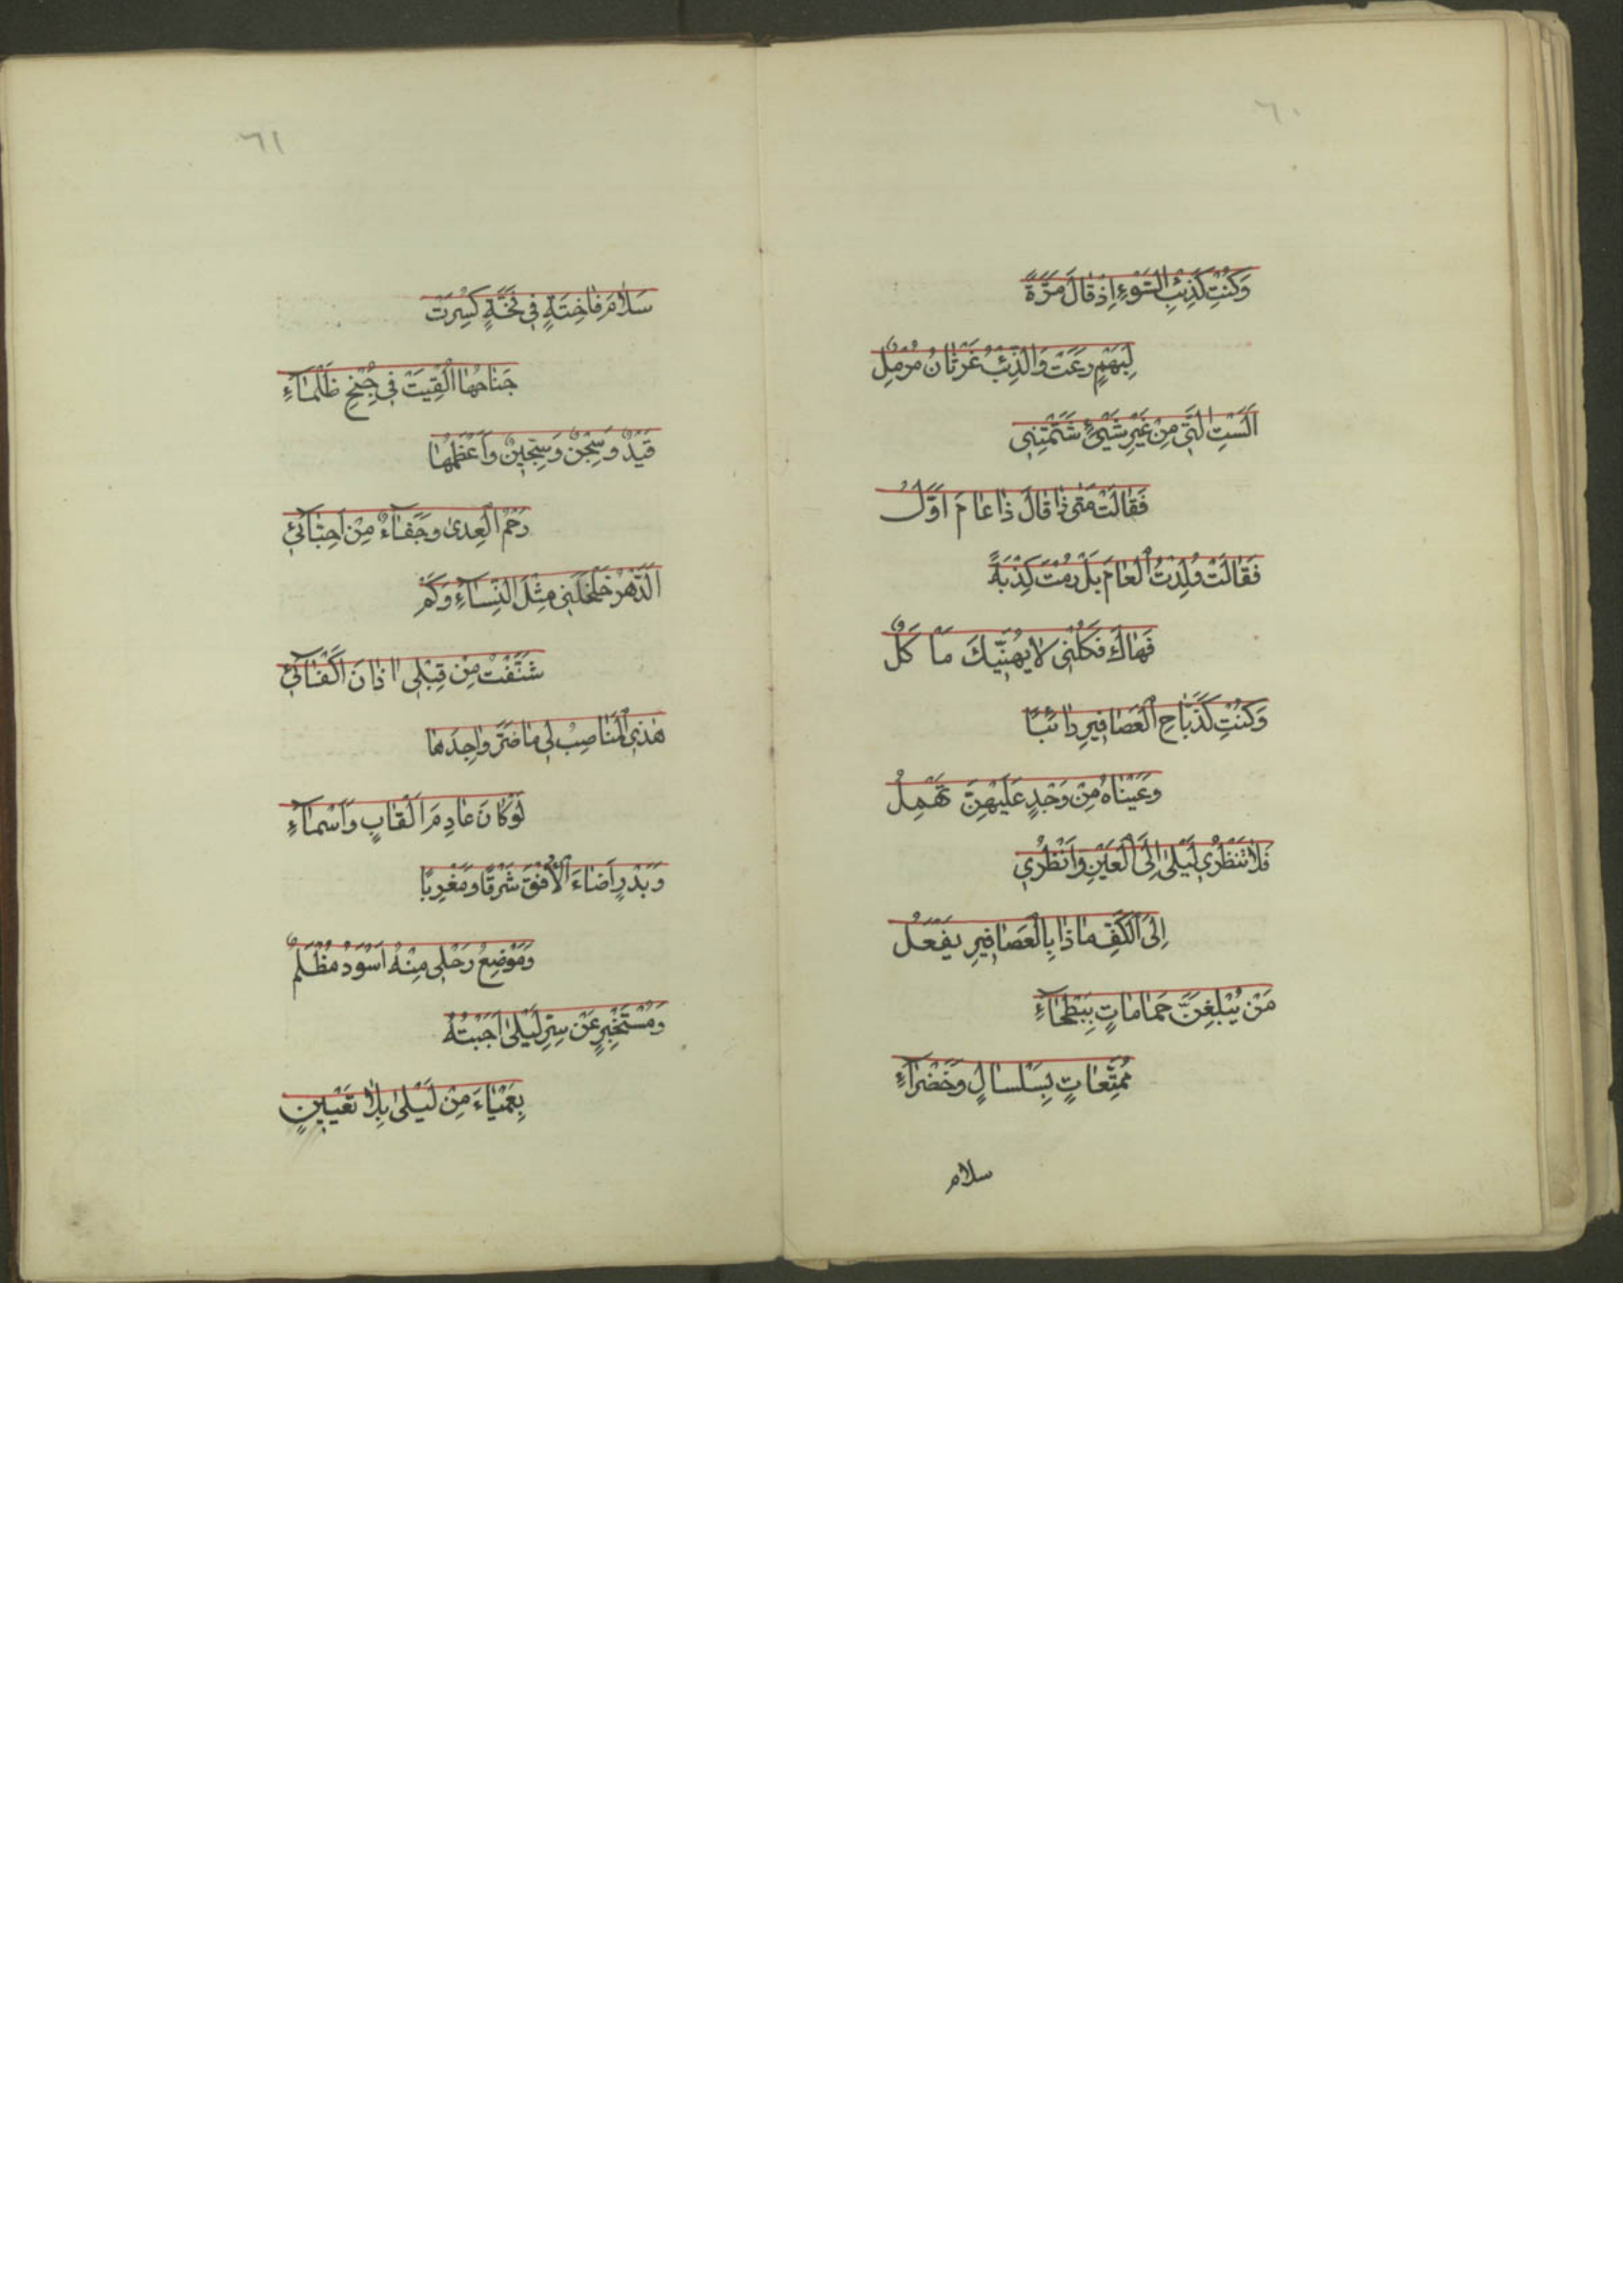 ٦٠
وَكُنْتِ كَذِئْبِ السَّوْءِ اِذْ قَالَ مَرَّةً
لِبَهْمٍ رَعَتْ وَالذِّئْبُ غَرْثَانُ مُرْمِلٌ
اَلَسْتِ الَّتِي مِنْ غَيْرِ شَيْءٍ شَتَمْتِنِي
فَقَالَتْ مَتَى ذَا قَالَ ذَا عَامَ اَوَّلُ
فَقَالَتْ وُلِدْتُ الْعَامَ بَلْ رُمْتَ كِذْبَةً
فَهَاكَ فَكُلْنِي لَا يُهَنِّيكَ مَا كَلٌ
وَكُنْتِ كَذَبَّاحِ الْعَصَافِيرِ دَائِبًا
وَعَيْنَاهُ مِنْ وَجْدٍ عَلَيْهِنَّ تَهْمِلُ
فَلَا تَنْظُرِي لَيْلَى اِلَى الْعَيْنِ وَاَنْظُرِي
اِلَى الْكَفِّ مَاذَا بِالْعَصَافِيرِ يَفْعَلُ
مَنْ يُبْلِغَنَّ حَمَامَاتٍ بِبَطْحَآءِ
مُمَتَّعَاتٍ بِسَلْسَالٍ وَخَضْرَآءِ
سلام
٦١
سَلَامَ فَاخِتَةٍ فِي فَخَّةٍ كُسِرَتْ
جَنَاحُهَا اُلْقِيَتْ فِي جُنْحِ ظَلْمَآءِ
قَيْدٌ وَسِجْنٌ وَسِجِّينٌ وَاَعْظَمُهَا
رَحْمُ الْعِدَى وَجَفَآءٌ مِنْ اَحِبَّآئِي
اَلدَّهْرُ خَلْخَلَنِي مِثْلَ النِّسَآءِ وَكَمْ
شَنَّفْتُ مِنْ قِبَلِي اٰذَانَ اَكْفَآئِي
هٰذِي الْمَنَاصِبُ لِي مَا ضَرَّ وَاجِدَهَا
لَوْ كَانَ عَادِمَ اَلْقَابٍ وَاَسْمَآءِ
وَبَدْرٍ اَضَاءَ الْاُفْقَ شَرْقًا وَمَغْرِبًا
وَمَوْضِعُ رَحْلِي مِنْهُ اَسْوَدُ مُظْلِمٌ
وَمُسْتَخْبِرٍ عَنْ سِرِّ لَيْلَى اَجَبْتُهُ
بِعَمْيَاءَ مِنْ لَيْلَى بِلَا تَعْيِينٍ